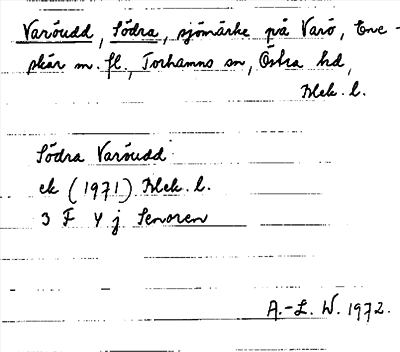 Varöudd, Södra, sjömärke på Varö, Ene-
skär m. fl., Torhamns sn, Östra hd,
Blek. l.
Södra Varöudd
ek (1971) Blek. l.
3 F 4 j Senoren
A.-L. W. 1972.